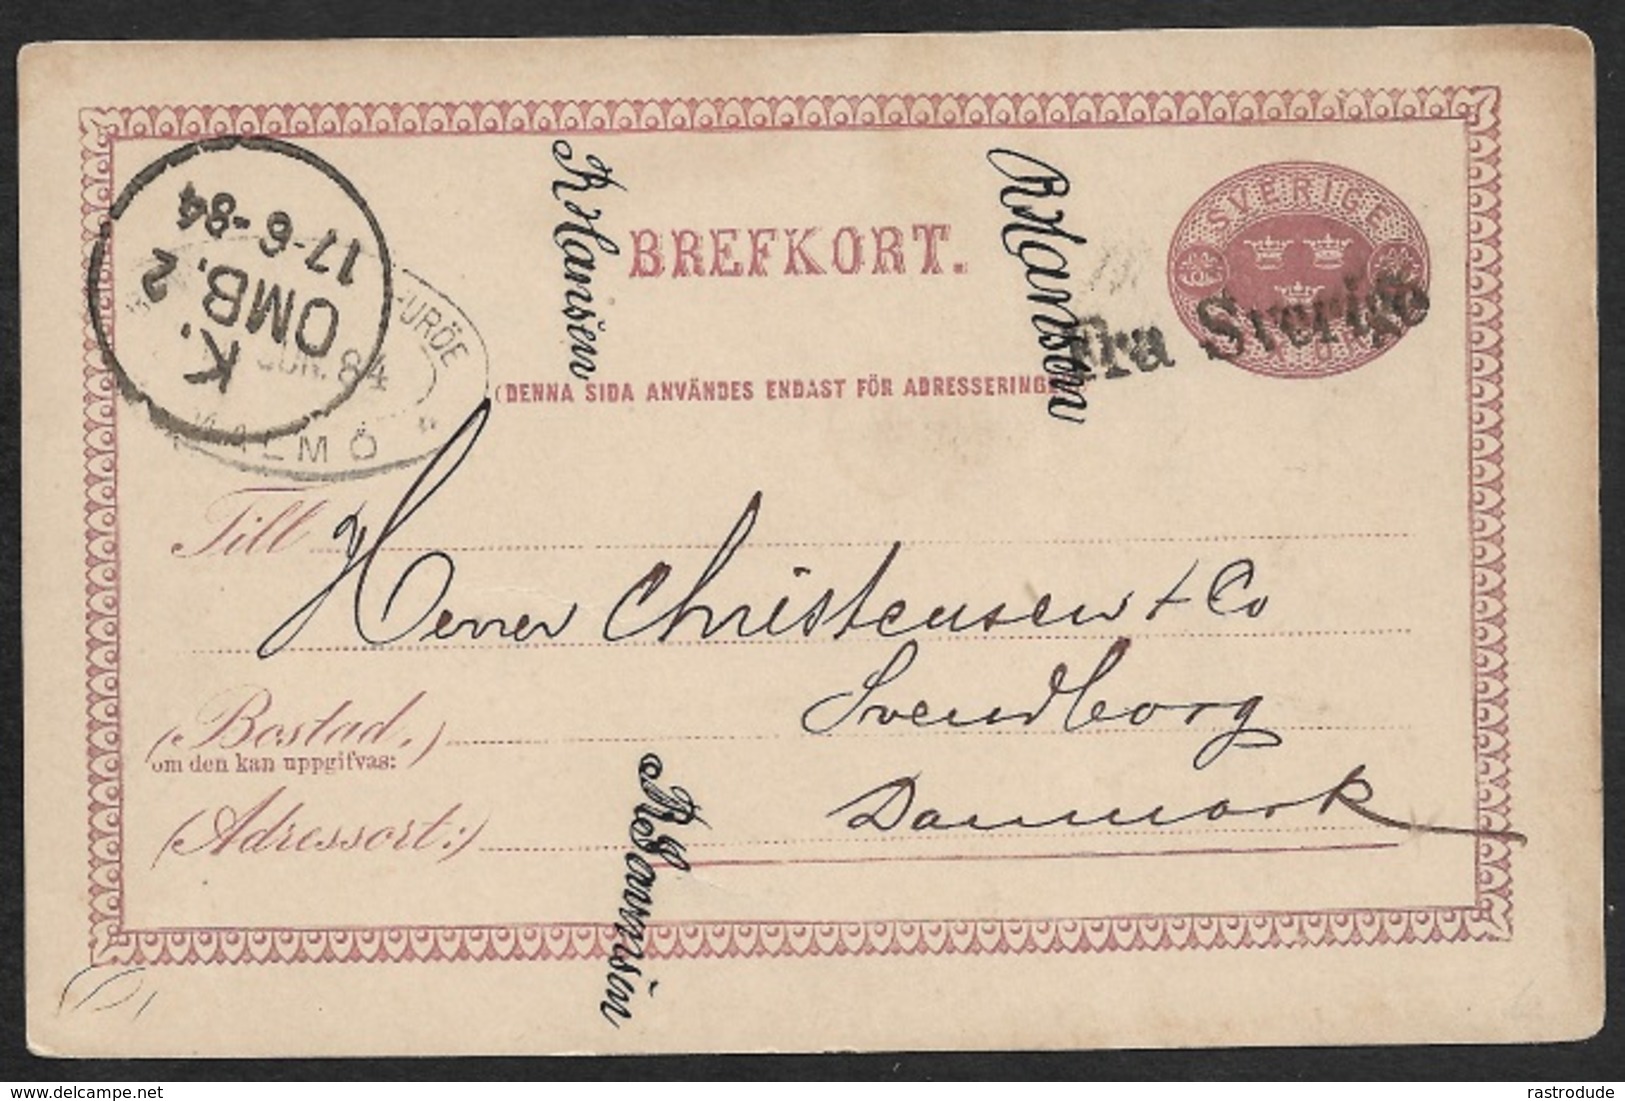 SVERIGE
BREFKORT.
Fra Sverige
(DENNA SIDA ANVÄNDES ENDAST FÖR ADRESSERINGE
K. OMB. 2
17-6-84
84
MALMÖ
R Hansen
Till
Herrer Christensen & Co
Svendborg
(Bostad,)
om den kan uppgifvas:
Danmark
(Adressort:)
delcampe.net
rastrodude